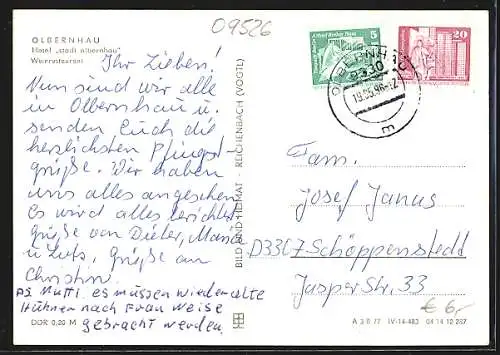 09526
OLBERNHAU
Hotel „Stadt Olbernhau“
Weinrestaurant
Ihr Lieben!
Nun sind wir alle
in Olbernhau u.
senden Euch die
herzlichsten Pfingst-
grüße. Wir haben
uns alles angesehen.
Es wird alles berichtet
Grüße von Dieter,
u. Lutz, Grüße an
Christin.
PS Mutti, es müssen wieder alte
Hühner nach Frau Weise
gebracht werden.
DDR 0,20 M
BILD UND HEIMAT · REICHENBACH (VOGTL)
5
20
OLBERNHAU
9330
Fam.
Josef Janus
D3307 Schöppenstedt
Jasperstr. 33
€ 6,-
A 3 B 77 IV-14-483 04 14 12 287